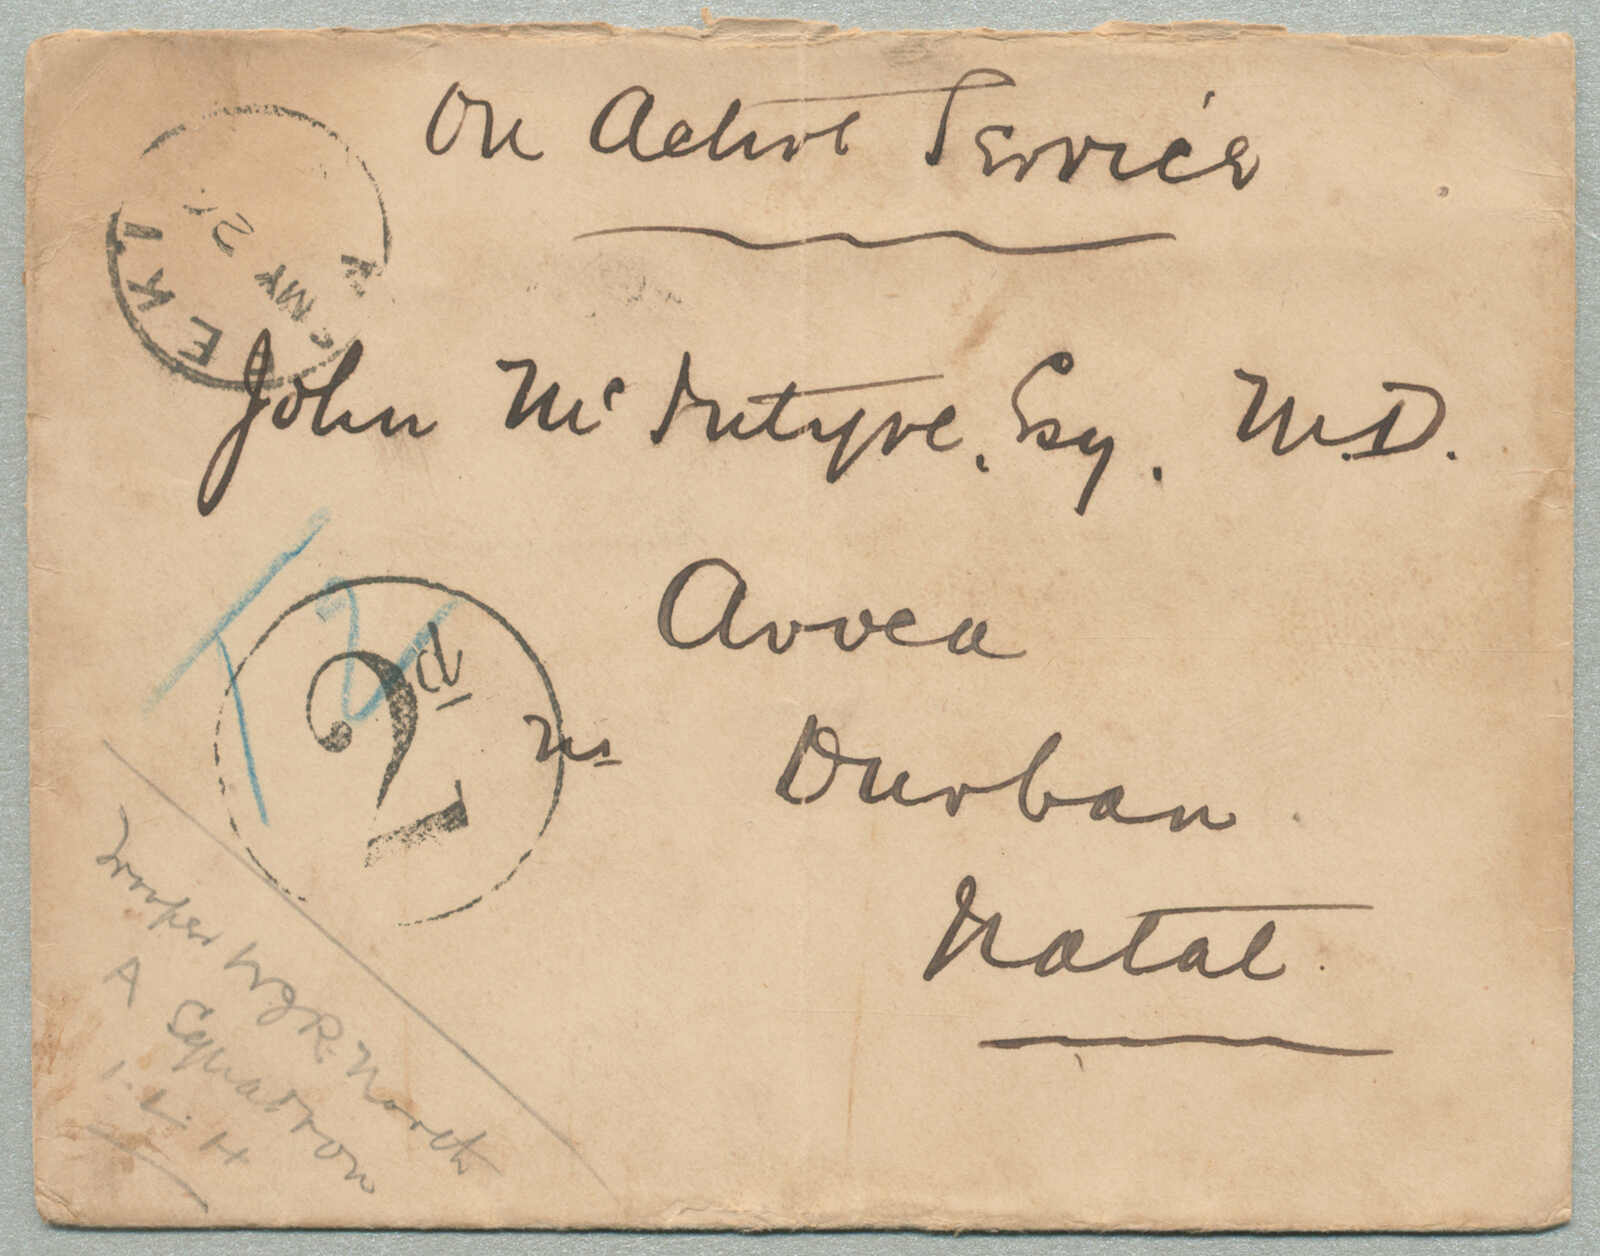 On Active Service
EKI
MY 2
John McIntyre, Esq. M.D.
2d
T 2
Avoca
Durban
Natal.
Trooper W J R. North
A Squadron
I. L. H